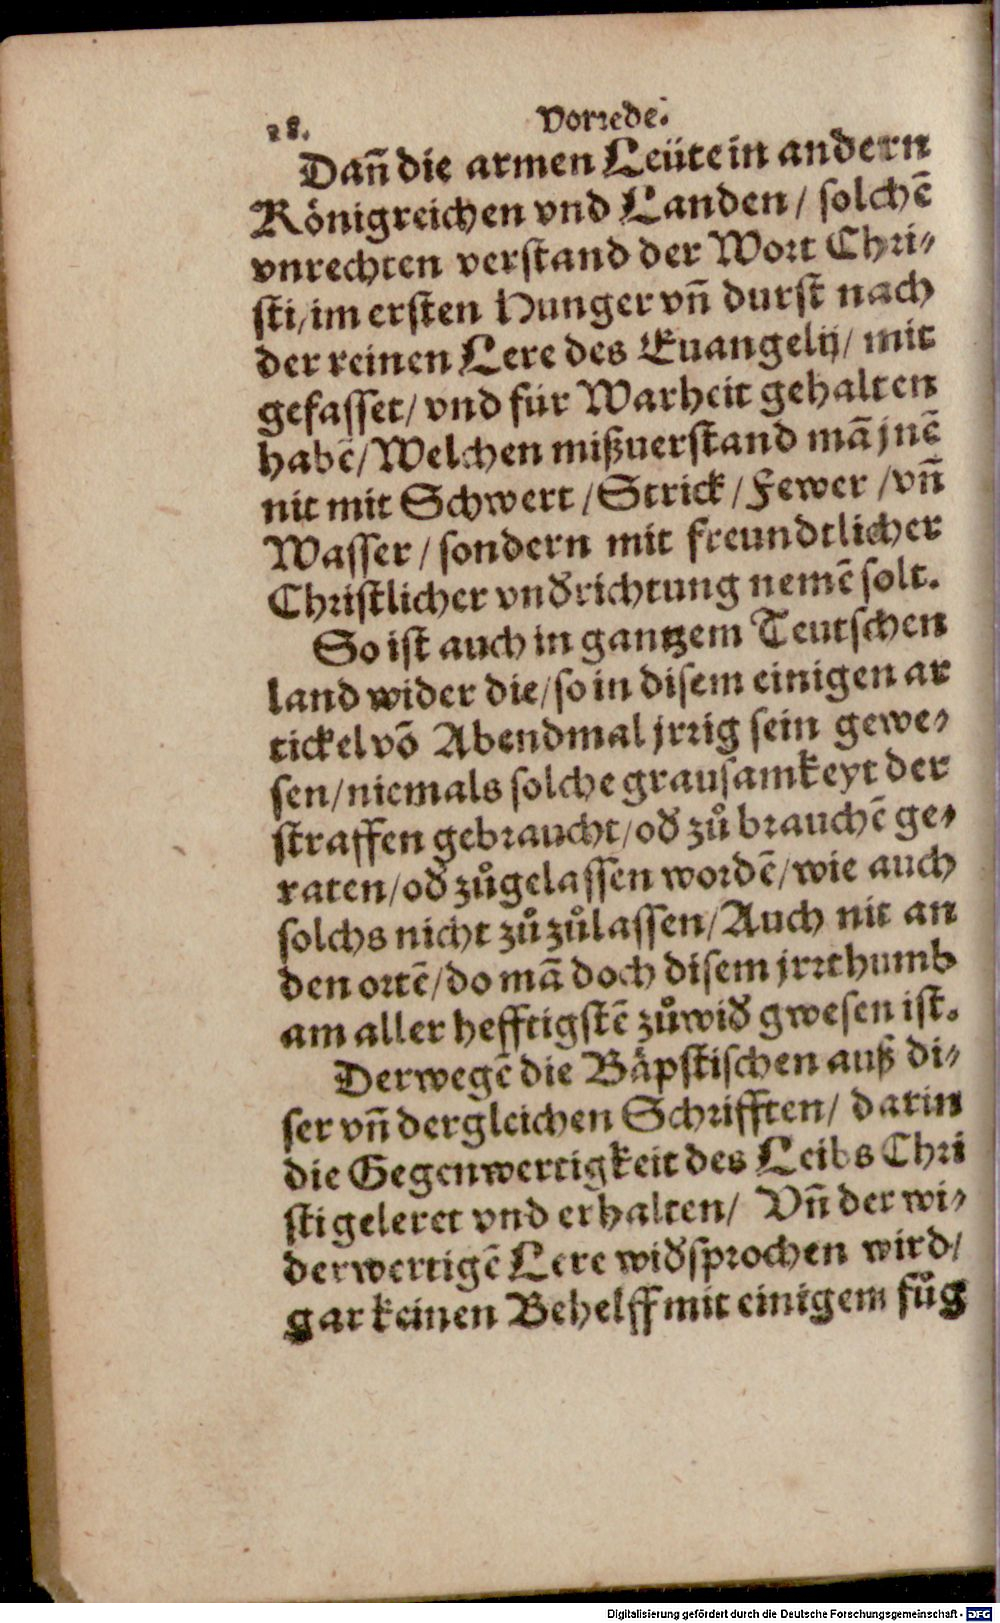 28. Vorrede.
Dañ die armen Leüte in andern
Königreichen vnd Landen/ solchẽ
vnrechten verstand der Wort Chri⸗
sti/im ersten Hunger vñ durst nach
der reinen Lere des Euangelij/ mit
gefasset/ vnd für Warheit gehalten
habẽ/Welchen mißuerstand mã jnẽ
nit mit Schwert /Strick / Fewer /vñ
Wasser / sondern mit freundtlicher
Christlicher vnđrichtung nemẽ solt.
So ist auch in gantzem Teutschen
land wider die/so in disem einigen ar
tickel võ Abendmal jrrig sein gewe⸗
sen/niemals solche grausamkeyt der
straffen gebraucht/ođ zů brauchẽ ge⸗
raten/ođ zůgelassen wordẽ/wie auch
solchs nicht zů zůlassen/Auch nit an
den ortẽ/do mã doch disem jrrthumb
am aller hefftigstẽ zůwiđ gwesen ist.
Derwegẽ die Bäpstischen auß di⸗
ser vñ dergleichen Schrifften/ darin
die Gegenwertigkeit des Leibs Chri
sti geleret vnd erhalten/ Vñ der wi⸗
derwertigẽ Lere wiđsprochen wird/
gar keinen Behelff mit einigem fůg
Digitalisierung gefördert durch die Deutsche Forschungsgemeinschaft - DFG